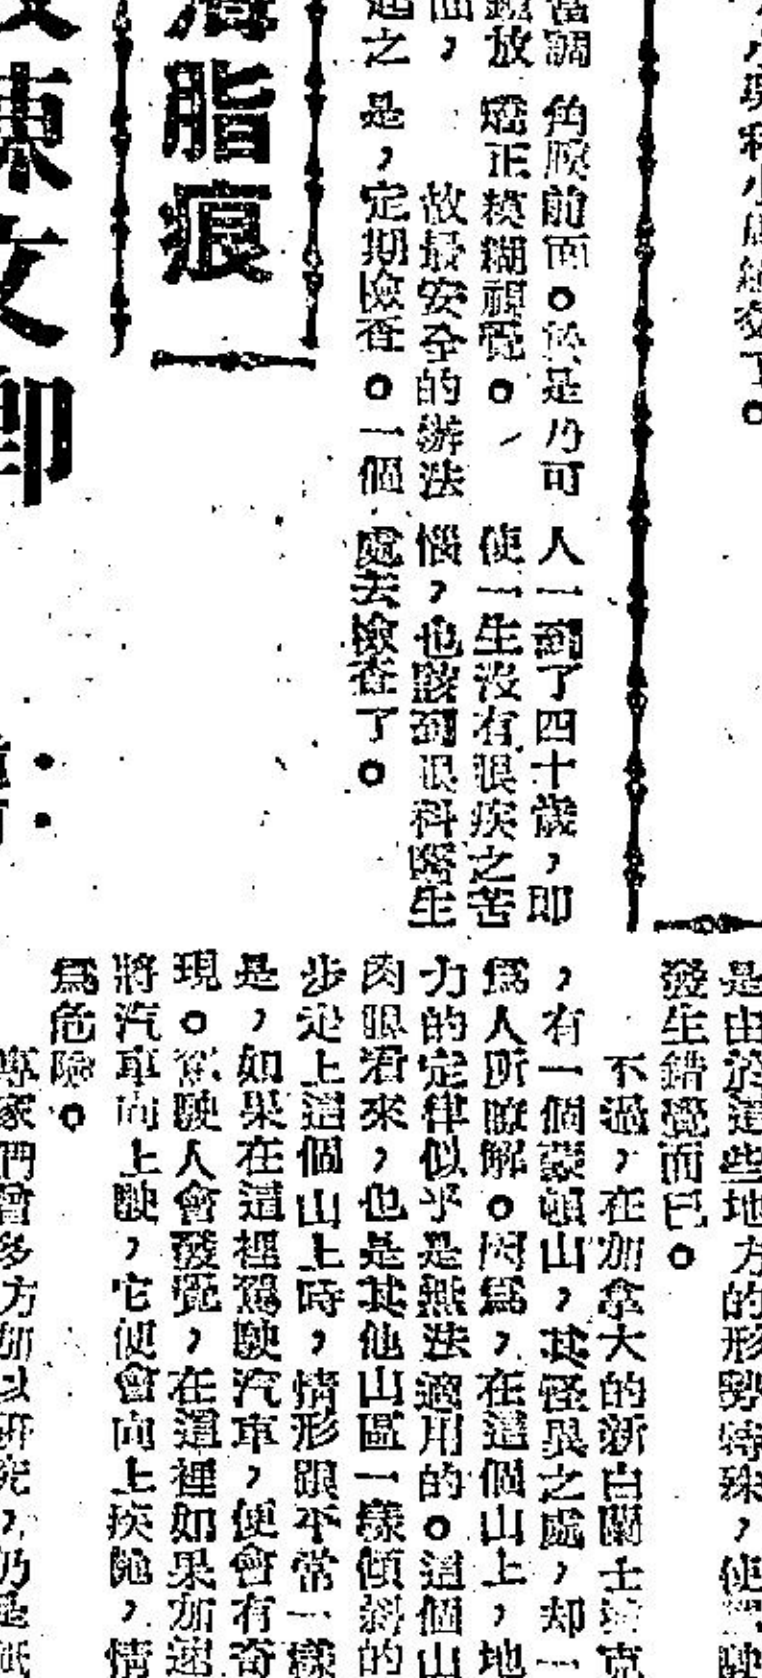 角膜前面。於是乃可
矯正模糊視覺。
故最安全的辦法
是，定期檢查。一個
人一到了四十歲，即
使一生沒有眼疾之苦
惱，也該到眼科醫生
處去檢查了。
脂痕
文卿
是由於這些地方的形勢特殊，使
發生錯覺而已。
不過，在加拿大的新白蘭士克
，有一個蒙頓山，其怪異之處，却一
為人所瞭解。因為，在這個山上，地
力的定律似乎是無法適用的。這個山
肉眼看來，也是其他山區一樣傾斜的
步走上這個山上時，情形跟平常一樣
是，如果在這裡駕駛汽車，便會有奇
現。駕駛人會發覺，在這裡如果加速
將汽車向上駛，它便會向上疾馳，情
為危險。
專家們曾多方加以研究，仍是